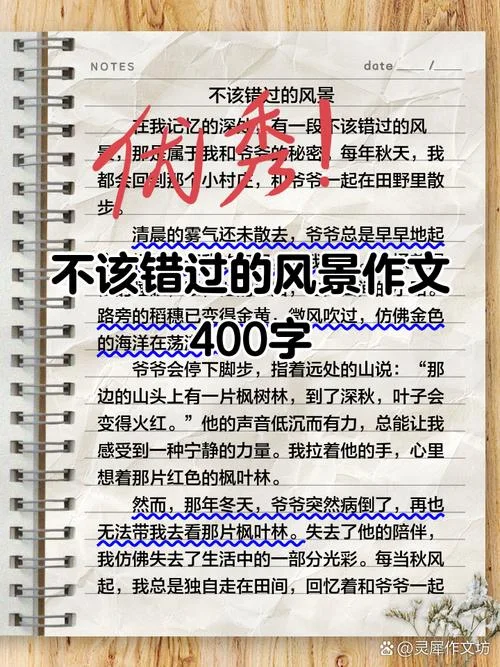 NOTES
date ____ / ____
不该错过的风景
在我记忆的深处，有一段不该错过的风
景，那是属于我和爷爷的秘密。每年秋天，我
都会回到那个小村庄，和爷爷一起在田野里散
步。
优秀！
清晨的雾气还未散去，爷爷总是早早地起
不该错过的风景作文
400字
路旁的稻穗已变得金黄，微风吹过，仿佛金色
的海洋在荡
爷爷会停下脚步，指着远处的山说：“那
边的山头上有一片枫树林，到了深秋，叶子会
变得火红。”他的声音低沉而有力，总能让我
感受到一种宁静的力量。我拉着他的手，心里
想着那片红色的枫叶林。
然而，那年冬天，爷爷突然病倒了，再也
无法带我去看那片枫叶林。失去了他的陪伴，
我仿佛失去了生活中的一部分光彩。每当秋风
起，我总是独自走在田间，回忆着和爷爷一起
灵犀作文坊